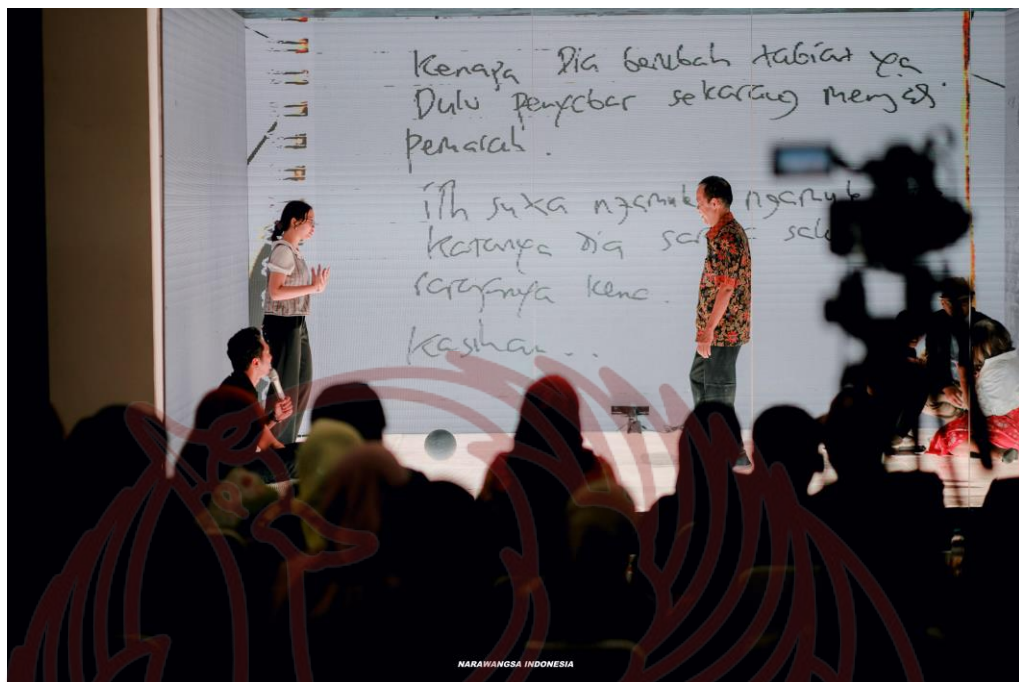 Kenapa Dia berubah tabiat ya
Dulu penyabar sekarang menjadi
pemarah.
ih suka ngamuk ngamuk
katanya dia
sarafnya kena.
kasihan..
NARAWANGSA INDONESIA